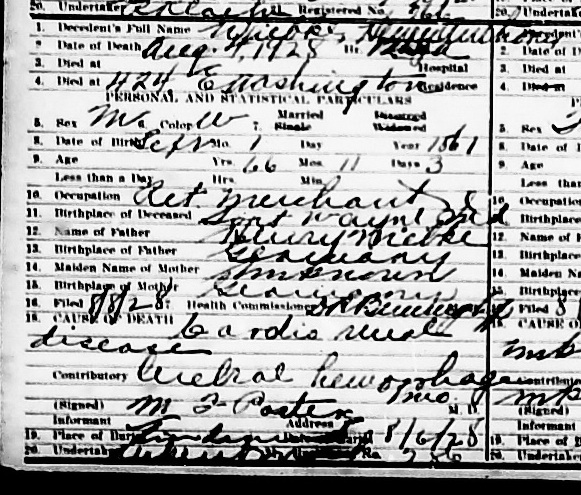 20. Undertaker Registered No.
20. Undertaker
1. Decedent's Full Name
2. Date of Death Aug. 4, 1928 Hr.
2. Date of D
3. Died at Hospital
3. Died at
4. Died at 424 E Washington Residence
4. Died at
PERSONAL AND STATISTICAL PARTICULARS
5. Sex Ma. Color W 7. Married Single Divorced Widowed
5. Sex
8. Date of Birth Sept Mo. 1 Day Year 1861
8. Date of B
9. Age Yrs. 66 Mos. 11 Days 3
9. Age
Less than a Day Hrs. Min.
Less than
10. Occupation Ret. Merchant
10. Occupation
11. Birthplace of Deceased Fort Wayne Ind
Birthplace
12. Name of Father Henry Niebke
12. Name of F
13. Birthplace of Father Germany
13. Birthplace
14. Maiden Name of Mother Unknown
14. Maiden Na
15. Birthplace of Mother Germany
15. Birthplace
16. Filed 8/8 28 17. Health Commissioner
Filed 8
18. CAUSE OF DEATH Cardio renal
18. CAUSE O
disease
Contributory Cerebral hemorrhage
Contributor
(Signed) M F Porter M. D.
(Signed)
Informant Address
Informant
19. Place of Burial 8/6/28
19. Place of B
20. Undertaker No.
20. Undertak